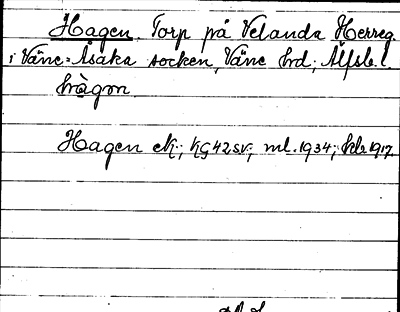 Hagen. Torp på Velanda Herreg.
i Väne-Åsaka socken, Väne hrd; Älfsb. l.
hàgən
Hagen ek; KG 42 sv; ml. 1934; hlr 1917.